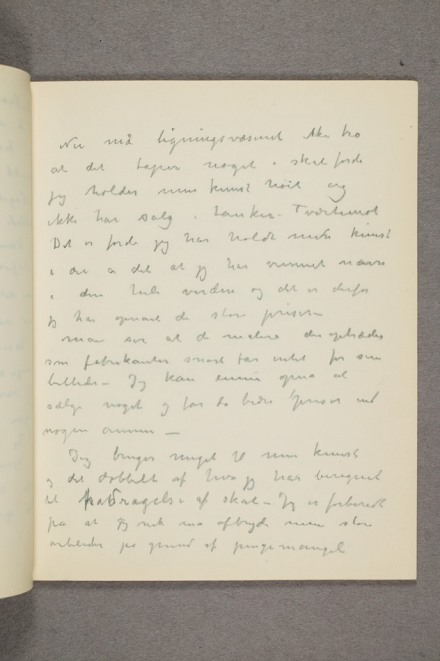 Nu må ligningsvæsenet ikke tro
at det taper noget i skat fordi
jeg holder min kunst høit og
ikke har salg i tanker – Tvertimot
Det er fordi jeg har holdt min kunst
i ære at det at jeg har vunnet navn
i den hele verden og det er derfor
jeg har opnået de store priser –
man ser at de malere der optræder
som fabrikanter snart får intet for sine
billeder – Jeg kan ennu opnå at
sælge noget og får da bedre priser end
nogen annen —
Jeg bruger meget til min kunst
og det dobbelt af hva jeg har beregnet
til fradragelse af skat – Jeg er forberedt
på at jeg nok må afbryde mine store
arbeider på grund af pengemangel